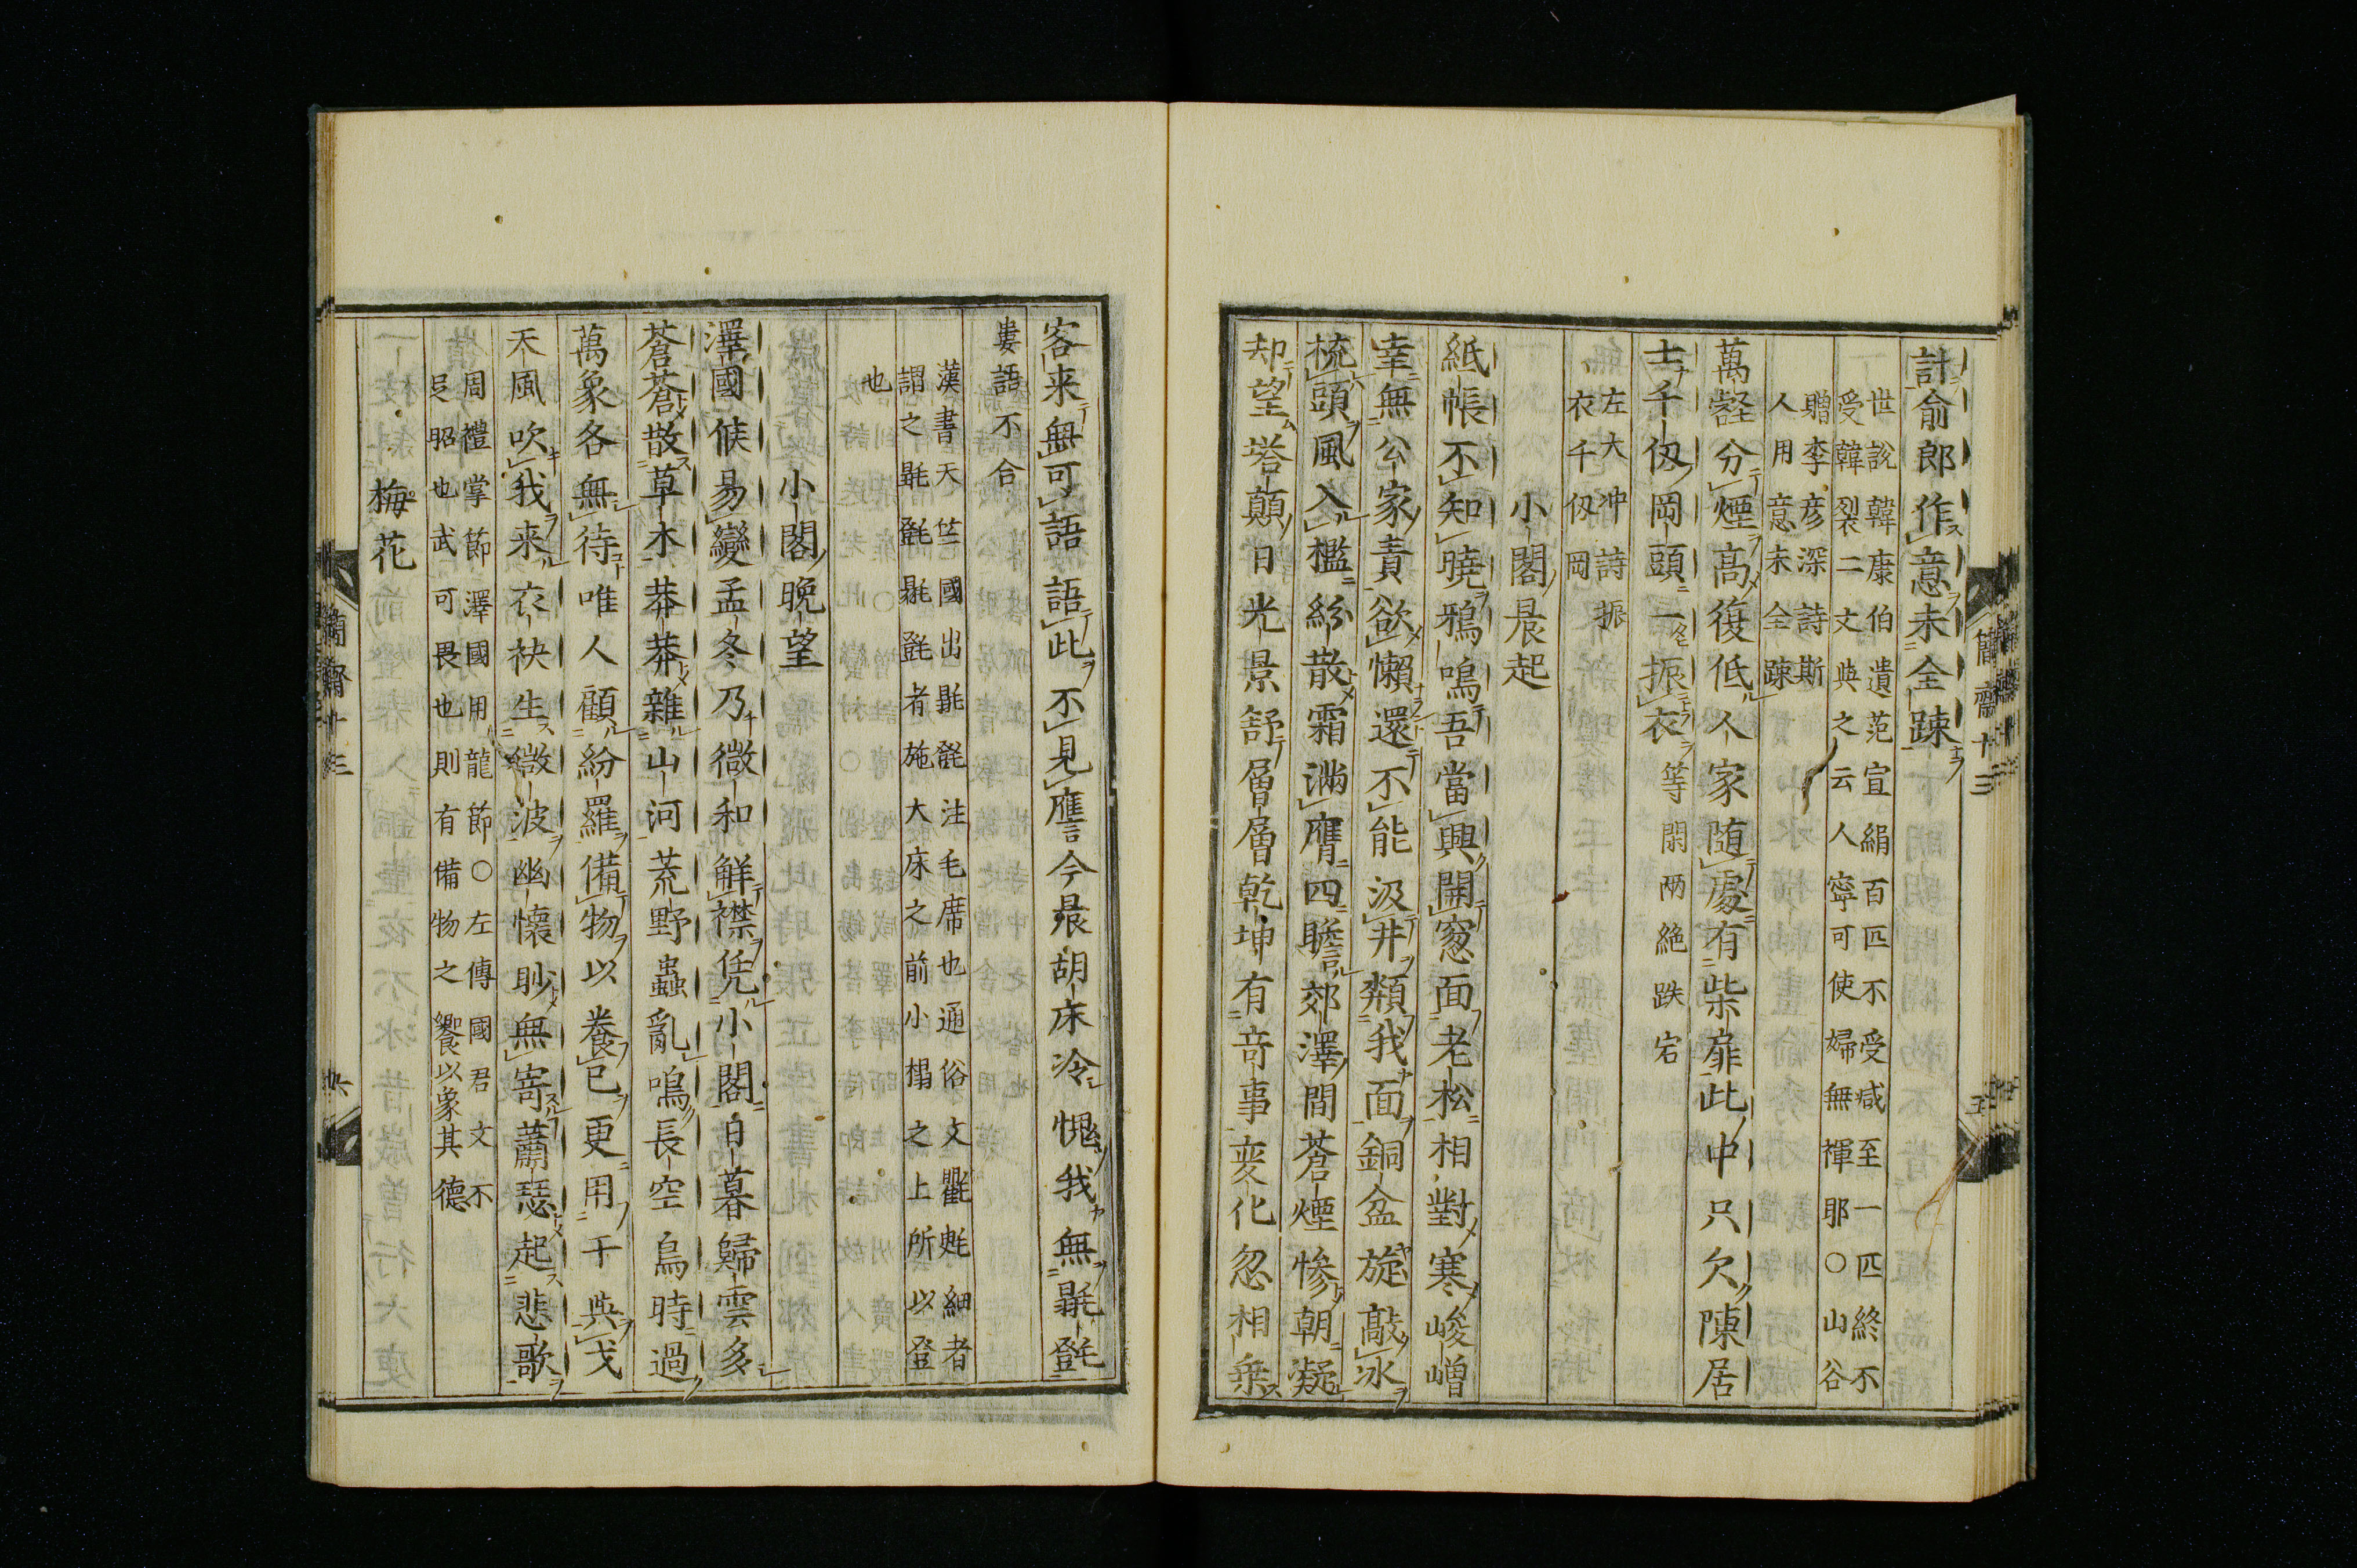 計俞郎作意未全踈
世說韓康伯遺范宣絹百匹不受咸至一匹終不
受韓裂二文與之云人寧可使婦無褌耶○山谷
贈李彦深詩斯
人用意未全踈
萬壑分煙髙復低人家随處有柴扉此中只欠陳居
士千仭岡頭一振衣等閑兩絶跌宕
左大冲詩振
衣千仭岡
小閣晨起
紙帳不知曉鴉鳴吾當興開窓面老松相對寒峻嶒
幸無公家責欲懶還不能汲井頮我面銅盆旋敲冰
梳頭風入檻紛散霜滿膺四瞻郊澤間蒼煙慘朝凝
却望塔顛日光景舒層層乾坤有竒事変化忽相乗
客来無可語語此不見譍今晨胡床冷愧我無毾㲪
婁語不合
漢書天竺國出毾㲪注毛席也通俗文氍毹細者
謂之毾㲪毾㲪者施大床之前小榻之上所以登
也
小閣晩望
澤國候易變孟冬乃微和解襟凭小閣日暮歸雲多
蒼蒼散草木莽莽雜山河荒野蟲亂鳴長空鳥時過
萬象各無待唯人顧紛羅備物以養己更用干與戈
天風吹我来衣袂生微波幽懷眇無寄蕭瑟起悲歌
周禮掌節澤國用龍節○左傳國君文不
足昭也武可畏也則有備物之饗以象其德
梅花
簡齋十三
五
簡齋十三
六